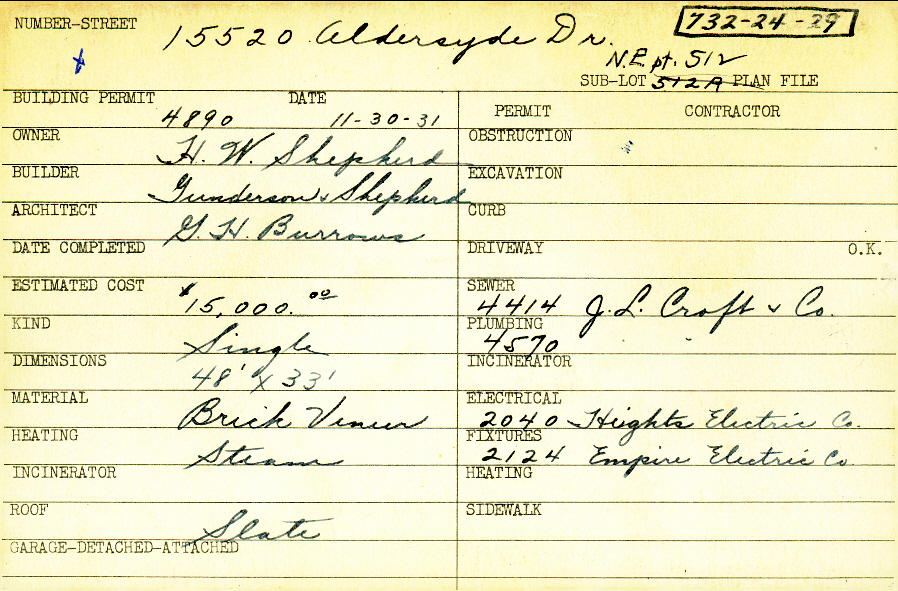 NUMBER-STREET 15520 Aldersyde Dr. 732-24-29
N.E. pt. 512
SUB-LOT 512A PLAN FILE
BUILDING PERMIT 4890 DATE 11-30-31
PERMIT CONTRACTOR
OWNER H. W. Shepherd
OBSTRUCTION
BUILDER Gunderson & Shepherd
EXCAVATION
ARCHITECT G. H. Burrows
CURB
DATE COMPLETED
DRIVEWAY O.K.
ESTIMATED COST $15,000.00
SEWER 4414 J. L. Croft & Co.
KIND Single
PLUMBING 4570 "
DIMENSIONS 48' X 33'
INCINERATOR
MATERIAL Brick Veneer
ELECTRICAL 2040 Heights Electric Co.
HEATING Steam
FIXTURES 2124 Empire Electric Co
INCINERATOR
HEATING
ROOF Slate
SIDEWALK
GARAGE-DETACHED-ATTACHED